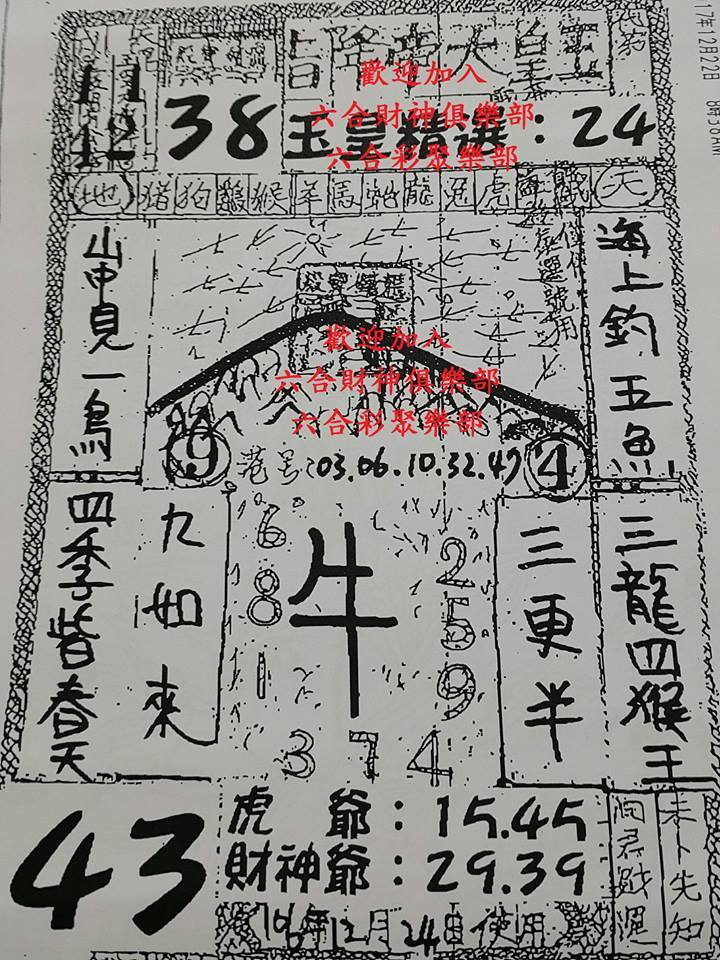 17年12月22日
玉皇大帝降
上
日
歡迎加入
11
42
38
玉皇精選：24
六合財神俱樂部
六合彩聚樂部
地 豬 狗 鷄 猴 羊 馬 蛇 龍 兔 虎 天
海上釣五魚
山中見一鳥
歡迎加入
六合財神俱樂部
六合彩聚樂部
9
港号:03.06.10.32.47
4
三龍四猴王
三更半
6
8
1
牛
2
5
9
3 7 4
九如來
四季皆春天
43
虎爺：15.45
財神爺：29.39
106年12月24日使用
未卜先知
問君財運